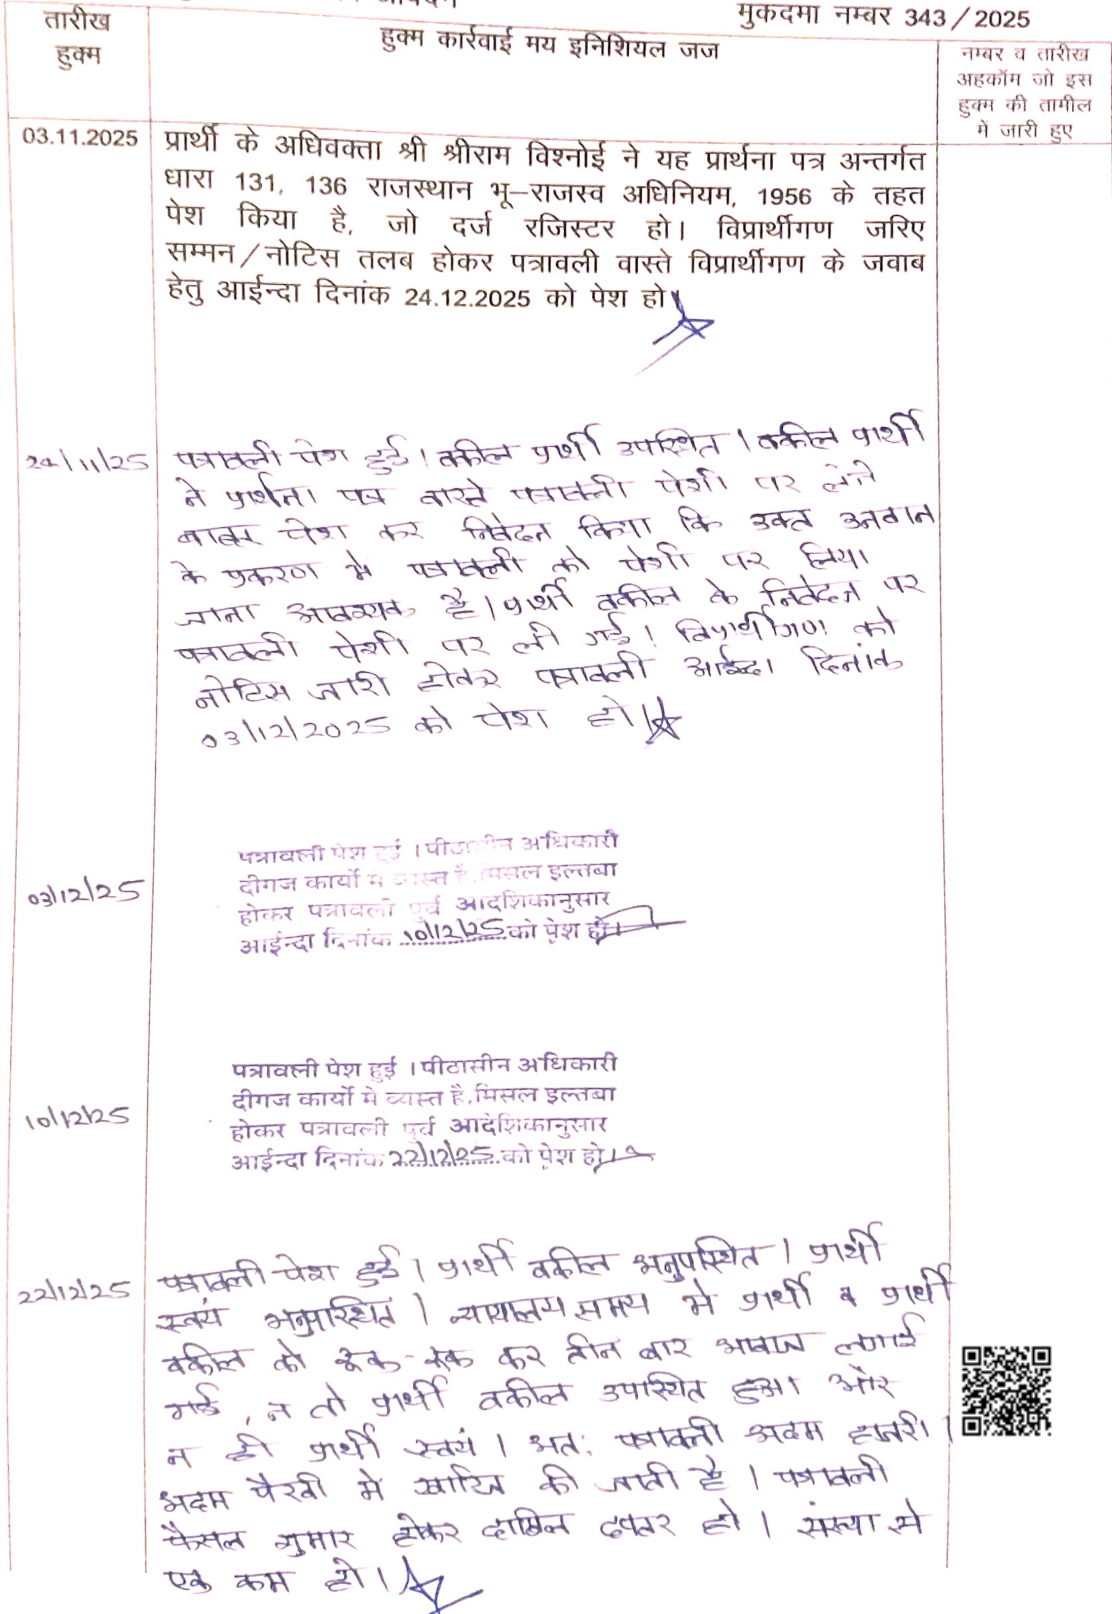 मुकदमा नम्बर 343/2025
तारीख
हुक्म
हुक्म कार्रवाई मय इनिशियल जज
नम्बर व तारीख
अहकॉम जो इस
हुक्म की तामील
में जारी हुए
03.11.2025
प्रार्थी के अधिवक्ता श्री श्रीराम विश्नोई ने यह प्रार्थना पत्र अन्तर्गत
धारा 131, 136 राजस्थान भू–राजस्व अधिनियम, 1956 के तहत
पेश किया है, जो दर्ज रजिस्टर हो। विप्रार्थीगण जरिए
सम्मन/नोटिस तलब होकर पत्रावली वास्ते विप्रार्थीगण के जवाब
हेतु आईन्दा दिनांक 24.12.2025 को पेश हो।
24/11/25
पत्रावली पेश हुई। वकील प्रार्थी उपस्थित। वकील प्रार्थी
ने प्रार्थना पत्र वास्ते पत्रावली पेशी पर लेने
बाबत पेश कर निवेदन किया कि उक्त उनवान
के प्रकरण मे पत्रावली को पेशी पर लिया
जाना आवश्यक है। प्रार्थी वकील के निवेदन पर
पत्रावली पेशी पर ली गई। विप्रार्थीगण को
नोटिस जारी होकर पत्रावली आईन्दा दिनांक
03/12/2025 को पेश हो।
03/12/25
पत्रावली पेश हुई। पीठासीन अधिकारी
दीगज कार्यो मे व्यस्त है, मिसल इल्तबा
होकर पत्रावली पुर्व आदेशिकानुसार
आईन्दा दिनांक 10/12/25 को पेश हो।
10/12/25
पत्रावली पेश हुई। पीठासीन अधिकारी
दीगज कार्यो मे व्यस्त है, मिसल इल्तबा
होकर पत्रावली पुर्व आदेशिकानुसार
आईन्दा दिनांक 22/12/25 को पेश हो।
22/12/25
पत्रावली पेश हुई। प्रार्थी वकील अनुपस्थित। प्रार्थी
स्वयं अनुपस्थित। न्यायालय समय मे प्रार्थी व प्रार्थी
वकील को रूक-रूक कर तीन बार आवाज लगाई
गई, न तो प्रार्थी वकील उपस्थित हुआ और
न ही प्रार्थी स्वयं। अतः पत्रावली अदम हाजरी।
अदम पैरवी मे खारिज की जाती है। पत्रावली
फैसल शुमार होकर दाखिल दफ्तर हो। संख्या से
एक कम हो।